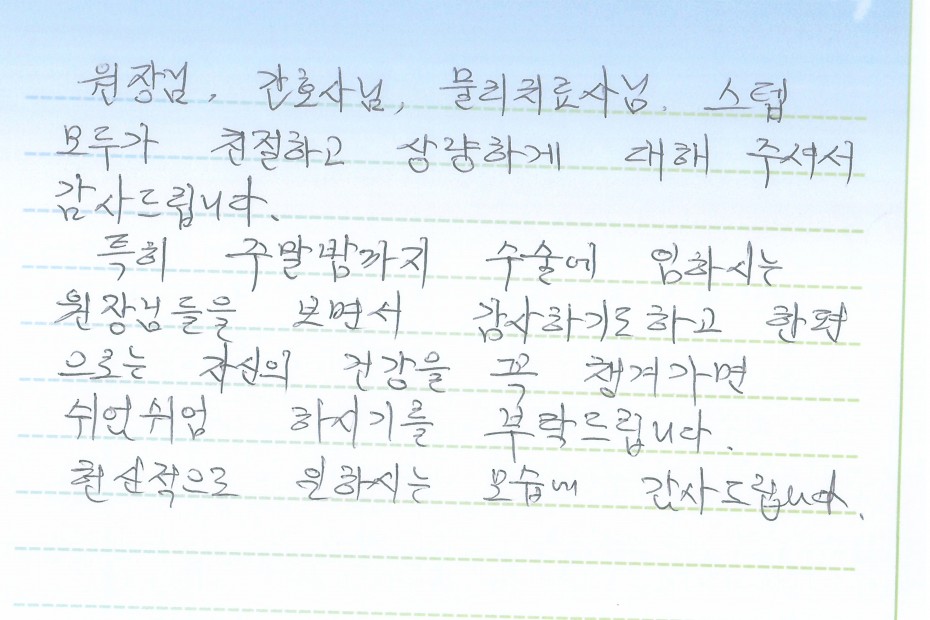 원장님, 간호사님, 물리치료사님, 스텝
모두가 친절하고 상냥하게 대해 주셔서
감사드립니다.
특히 주말밤까지 수술에 임하시는
원장님들을 보면서 감사하기도하고 한편
으로는 자신의 건강을 꼭 챙겨가면
쉬엄쉬엄 하시기를 부탁드립니다.
헌신적으로 일하시는 모습에 감사드립니다.